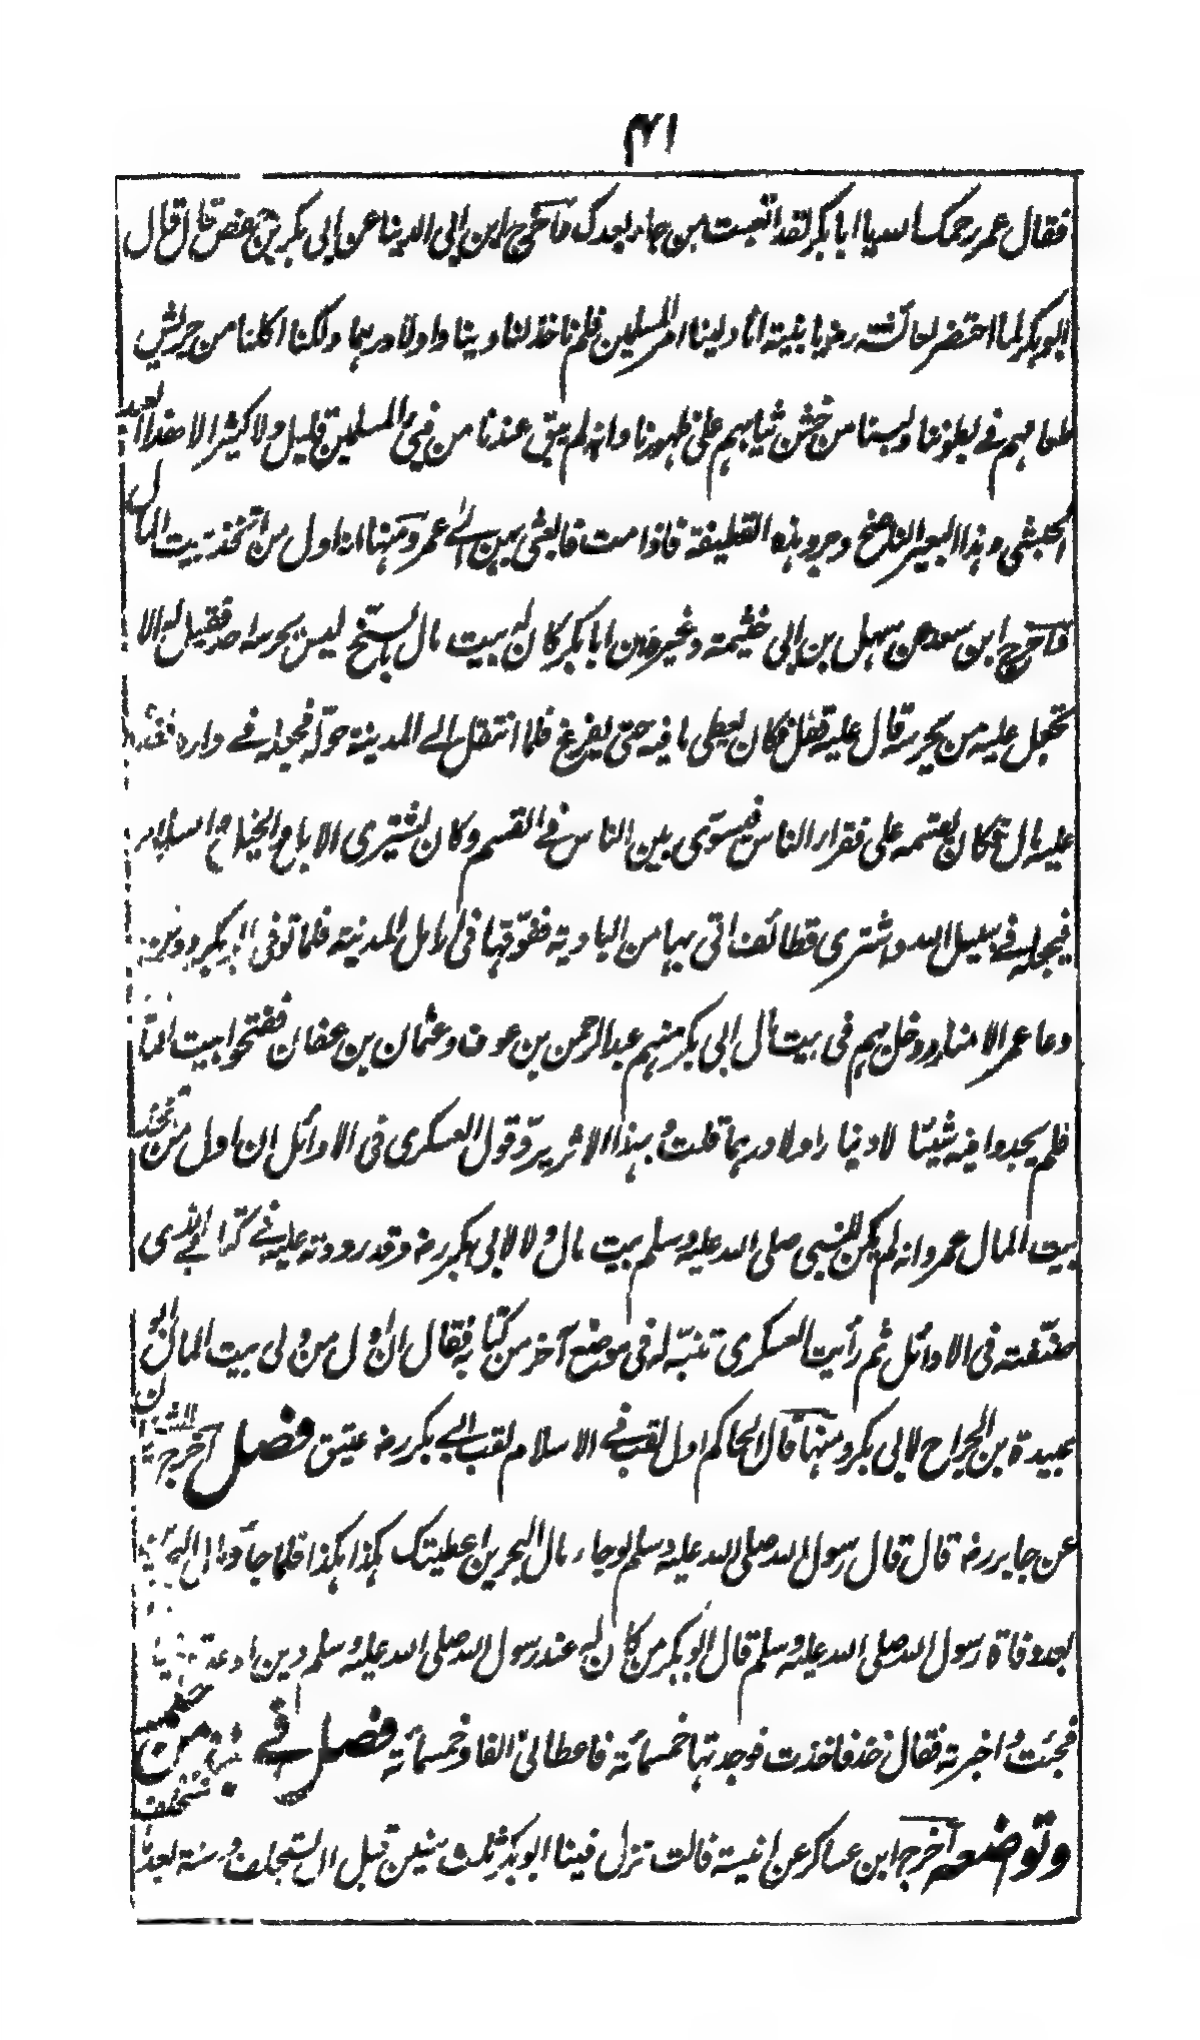 ۴۱
فقال عمر رحمك الله يا ابا بكر لقد اتعبت من جاء بعدك واخرج ابن ابي الدنيا عن ابي بكر بن حفص قال قال
ابو بكر لما احتضر لعائشة رضـ يا بنية انا ولينا امر المسلمين فلم ناخذ لنا دينارا ولا درهما ولكنا اكلنا من جريش
طعامهم في بطوننا ولبسنا من خشن ثيابهم على ظهورنا وانه لم يبق عندنا من فيء المسلمين قليل ولا كثير الا هذا العبد
الحبشي وهذا البعير الناضح وجرد هذه القطيفة فاذا مت فابعثي بهن الى عمر ومنها انه اول من اتخذ بيت المال
واخرج ابن سعد عن سهل بن ابي خيثمة وغيره ان ابا بكر كان له بيت مال بالسنح ليس يحرسه احد فقيل له الا
تجعل عليه من يحرسه قال عليه قفل فكان يعطي ما فيه حتى يفرغ فلما انتقل الى المدينة حوله فجعله في داره فقدم
عليه مال فكان يقسمه على فقراء الناس فيسوي بين الناس في القسم وكان يشتري الابل والخيل والسلاح
فيجعله في سبيل الله واشترى قطائف اتى بها من البادية ففرقها في ارامل المدينة فلما توفي ابو بكر ودفن
دعا عمر الامناء ودخل بهم في بيت مال ابي بكر منهم عبد الرحمن بن عوف وعثمان بن عفان ففتحوا بيت المال
فلم يجدوا فيه شيئا لا دينارا ولا درهما قلت وبهذا الاثر يرد قول العسكري في الاوائل ان اول من اتخذ
بيت المال عمر وانه لم يكن للنبي صلى الله عليه وسلم بيت مال ولا لابي بكر رضـ وقد رددته عليه في كتابي الذي
صنفته في الاوائل ثم رأيت العسكري تنبه له في موضع آخر من كتابه فقال ان اول من ولي بيت المال ابو
عبيدة بن الجراح لابي بكر ومنها قال الحاكم اول لقب في الاسلام لقب ابي بكر رضـ عتيق فصل اخرج الشيخان
عن جابر رضـ قال قال رسول الله صلى الله عليه وسلم لو جاء مال البحرين اعطيتك هكذا هكذا فلما جاء مال البحرين
بعد وفاة رسول الله صلى الله عليه وسلم قال ابو بكر من كان له عند رسول الله صلى الله عليه وسلم دين او عدة فليأتنا
فجئت واخبرته فقال خذ فاخذت فوجدتها خمسمائة فاعطاني الفا وخمسمائة فصل في نبذ من حلمه
وتواضعه اخرج ابن عساكر عن انيسة قالت نزل فينا ابو بكر ثلث سنين قبل ان يستخلف وسنة بعد ما استخلف